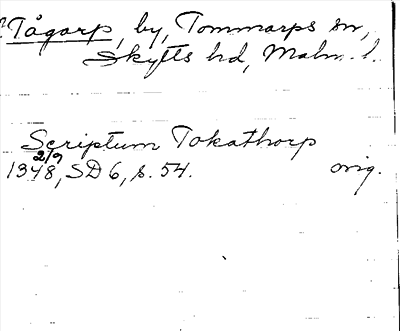 ?Tågarp, by, Tommarps sn,
Skytts hd, Malm. l.
Scriptum Tokathorp
2/9
1348, SD 6, s. 54. orig.